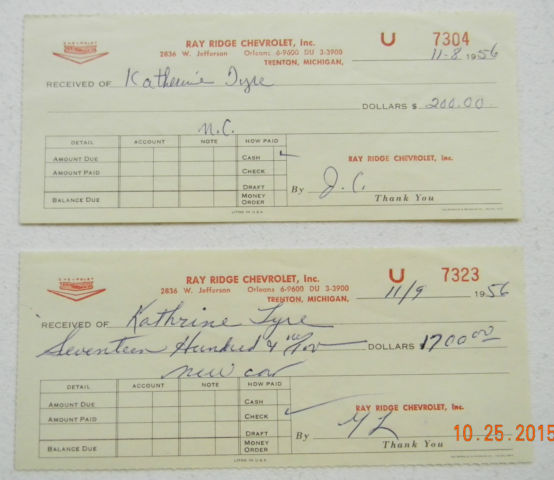 CHEVROLET
RAY RIDGE CHEVROLET, Inc. U 7304
2836 W. Jefferson Orleans 6-9600 DU 3-3900
TRENTON, MICHIGAN, 11-8 1956
RECEIVED OF Katherine Tyre
DOLLARS $ 200.00
N.C.
DETAIL ACCOUNT NOTE HOW PAID
AMOUNT DUE CASH ✓ RAY RIDGE CHEVROLET, Inc.
AMOUNT PAID CHECK
DRAFT By J.C.
BALANCE DUE MONEY ORDER Thank You
LITHO IN U.S.A.
CHEVROLET
RAY RIDGE CHEVROLET, Inc. U 7323
2836 W. Jefferson Orleans 6-9600 DU 3-3900
TRENTON, MICHIGAN, 11/9 1956
RECEIVED OF Kathrine Tyre
Seventeen Hundred & no/100 DOLLARS 1700 00
new car
DETAIL ACCOUNT NOTE HOW PAID
AMOUNT DUE CASH
AMOUNT PAID CHECK ✓ RAY RIDGE CHEVROLET, Inc.
DRAFT By
BALANCE DUE MONEY ORDER Thank You
LITHO IN U.S.A.
10.25.2015